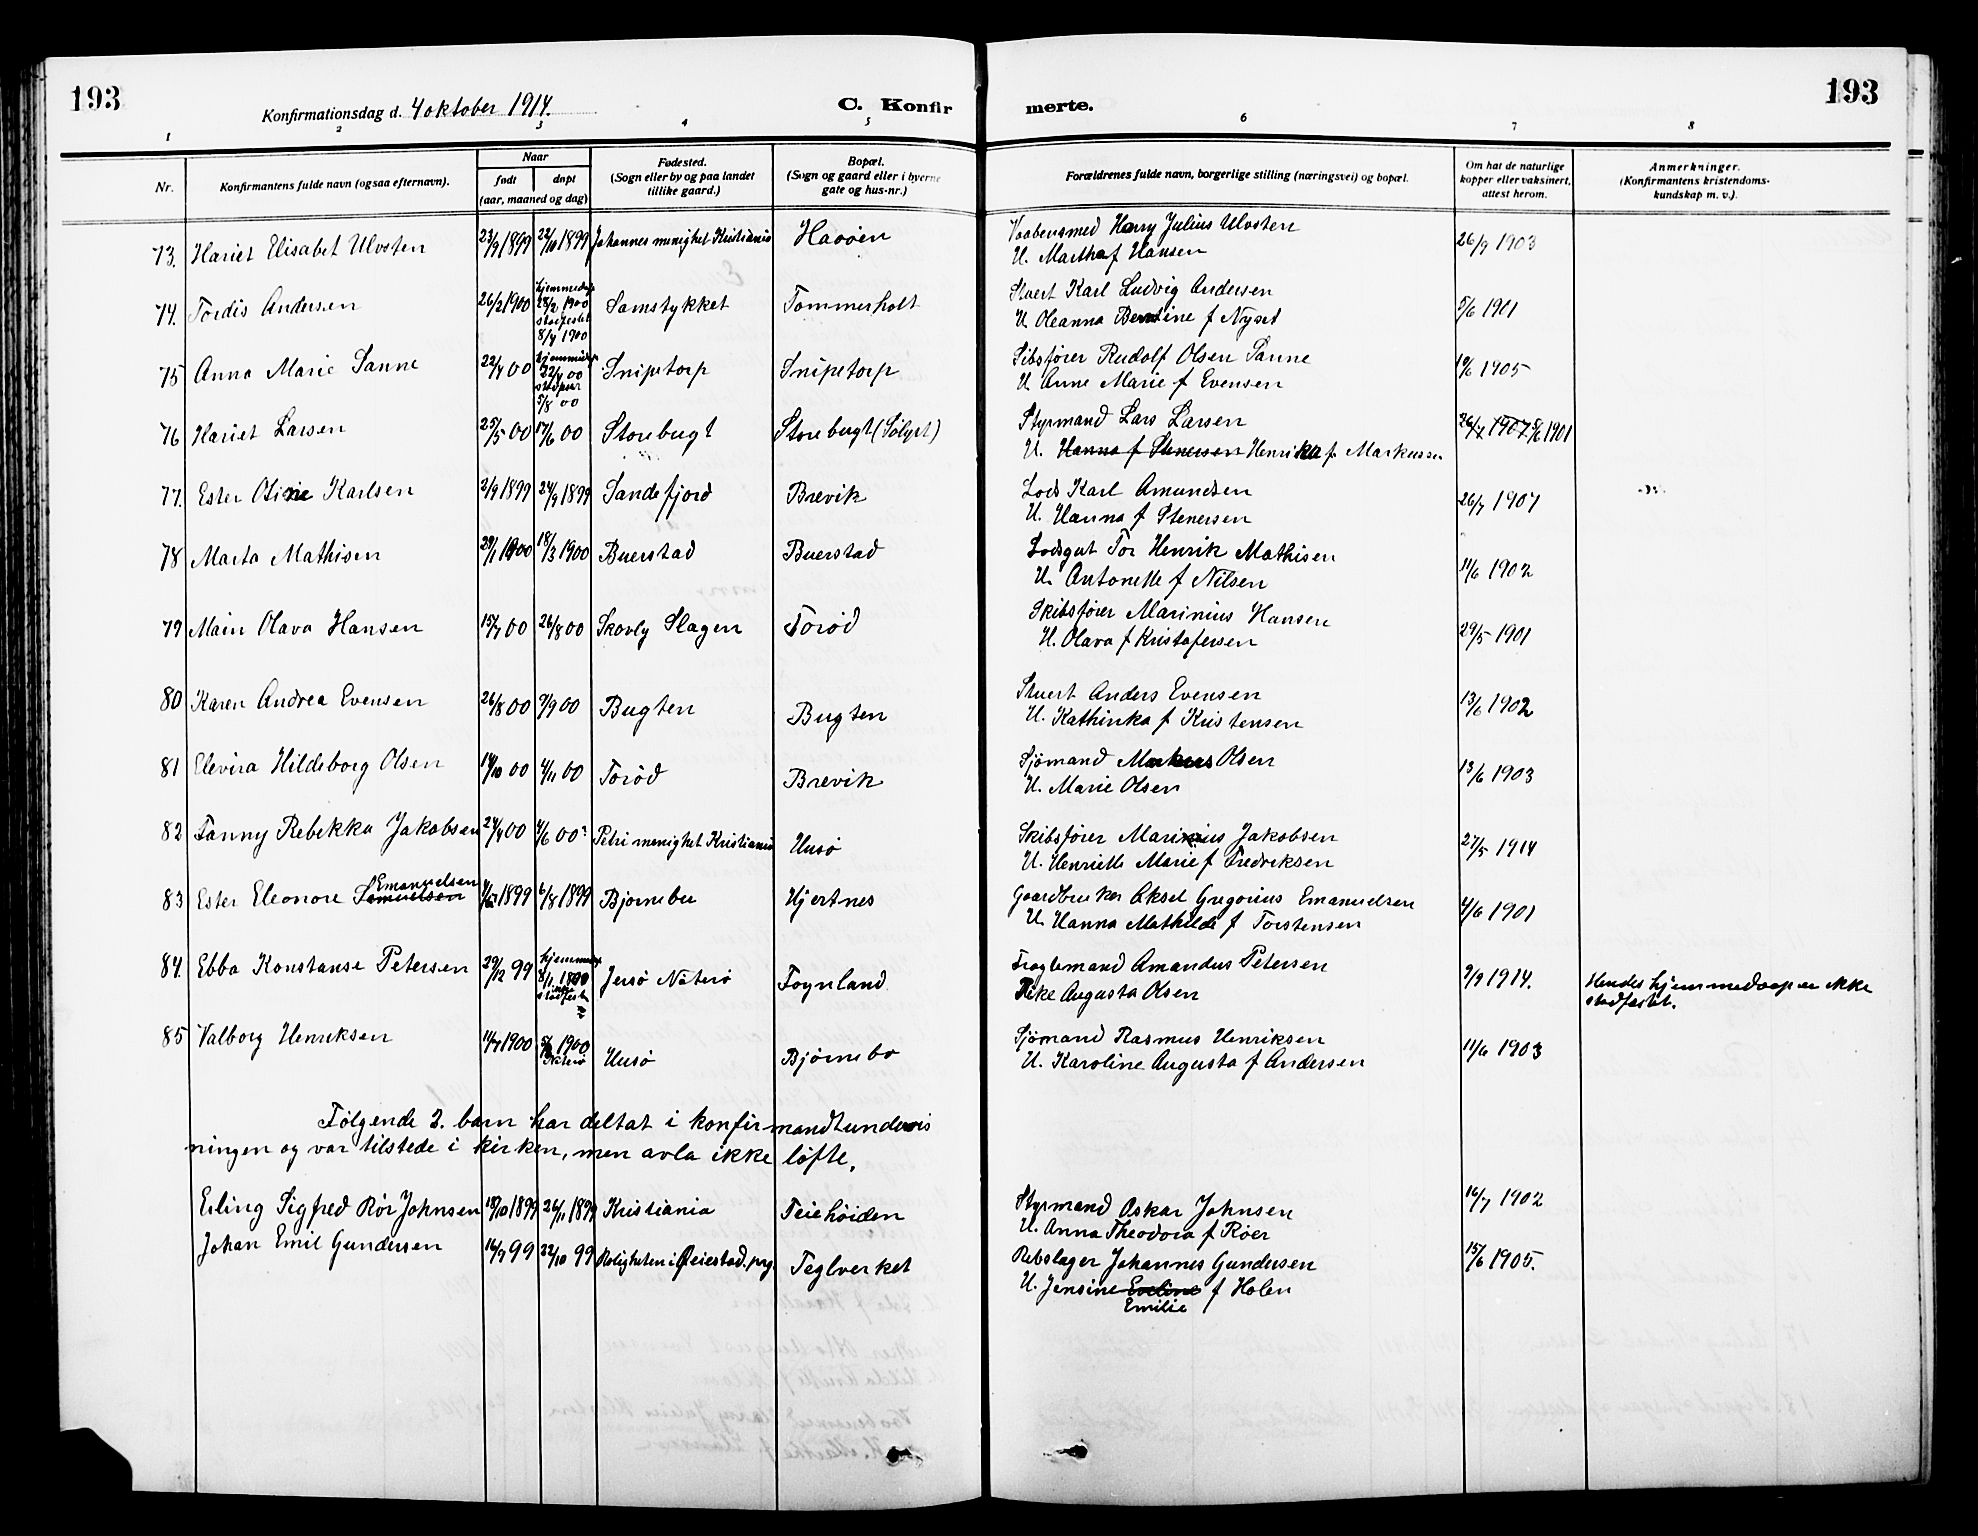 193
Konfirmationsdag d. 4 oktober 1914.
C. Konfir
merte.
193
1 2 3 4 5 6 7 8
Nr.
Konfirmantens fulde navn (ogsaa efternavn).
Naar
født døpt
(aar, maaned og dag)
Fødested.
(Sogn eller by og paa landet
tillike gaard.)
Bopæl.
(Sogn og gaard eller i byerne
gate og hus-nr.)
Forældrenes fulde navn, borgerlige stilling (næringsvei) og bopæl.
Om hat de naturlige
kopper eller vaksinert,
attest herom.
Anmerkninger.
(Konfirmantens kristendoms-
kundskap m. v.).
73. Hariet Elisabet Ulvsten 23/9 1899 22/10 1899 Johannes menighet Kristiania Havøen Vaabensmed Harry Julius Ulvsten 26/9 1903
U. Marthe f Hansen
74. Tordis Andersen 26/2 1900 hjemmedøpt 28/2 1900 stadfestet 8/4 1900 Samstykket Tommersholt Stuert Karl Ludvig Andersen 5/6 1901
U Oleanna Berntine f Nyset
75 Anna Marie Sanne 22/4 00 hjemmedøpt 22/4 00 5/8 00 Snipetorp Snipetorp Sibsfører Rudolf Olsen Sanne 1905
U Anne Marie f Evensen
76 Hariet Larsen 25/5 00 17/6 00 Storebugt Storebugt (Solyst) Styrmand Lars Larsen 26/7 1907 5/6 1901
U. Hanna f Stenersen Henrika f. Markussen
77. Ester Otine Karlsen 2/9 1899 24/9 1899 Sandefjord Brevik Lods Karl Amundsen 26/7 1907
U. Hanna f Stenersen
78 Marta Mathisen 29/1 1900 18/3 1900 Buerstad Buerstad Lodsgut Tor Henrik Mathisen 11/6 1902
U. Antonette f Nilsen
79 Main Olava Hansen 15/7 00 26/8 00 Skovly Slagen Torød Skibsfører Marinius Hansen 29/5 1901
U. Olava f Kristofersen
80 Karen Andrea Evensen 26/8 00 9/9 00 Bugten Bugten Stuert Anders Evensen 13/6 1902
U. Kathinka f Kristensen
81 Elevira Hildeborg Olsen 14/10 00 4/11 00 Torød Brevik Sjømand Markus Olsen 13/6 1903
U. Marie Olsen
82 Fanny Rebekka Jakobsen 24/4 00 4/6 00 Petri menighet Kristiania Husø Skibsfører Marinius Jakobsen 27/5 1914
U. Henriette Marie f Fredriksen
83 Ester Eleonore Samuelsen Emanuelsen 1899 6/8 1899 Bjørnebu Hjertnes Gaardbruker Aksel Gregorius Emanuelsen 4/6 1901
U. Hanna Mathilde f Torstensen
84. Ebba Konstanse Petersen 29/12 99 hjemmedøpt 8/1 1900 ikke stadfestet Jersø Nøterø Føynland Fraglemand Amandus Petersen 9/9 1914. Hendes hjemmedaap er ikke
stadfestet.
Pike Augusta Olsen
85 Valborg Henriksen 1900 1900 Nøterø Husø Bjørnebo Sjømand Rasmus Henriksen 11/6 1903
U. Karoline Augusta f Andersen
Følgende 2. barn har deltat i konfirmandtundervis
ningen og var tilstede i kirken, men avla ikke løfte.
Erling Sigfred Rør Johnsen 18/10 1899 26/11 1899 Kristiania Teiehøiden Styrmand Oskar Johnsen 16/7 1902
U. Anna Theodora f Røer
Johan Emil Gundersen 16/9 99 22/10 99 Roligheten i Øiestad prg. Teglverket Rebslager Johannes Gundersen 15/6 1905.
U. Jensine Eveline f Holen
Emilie